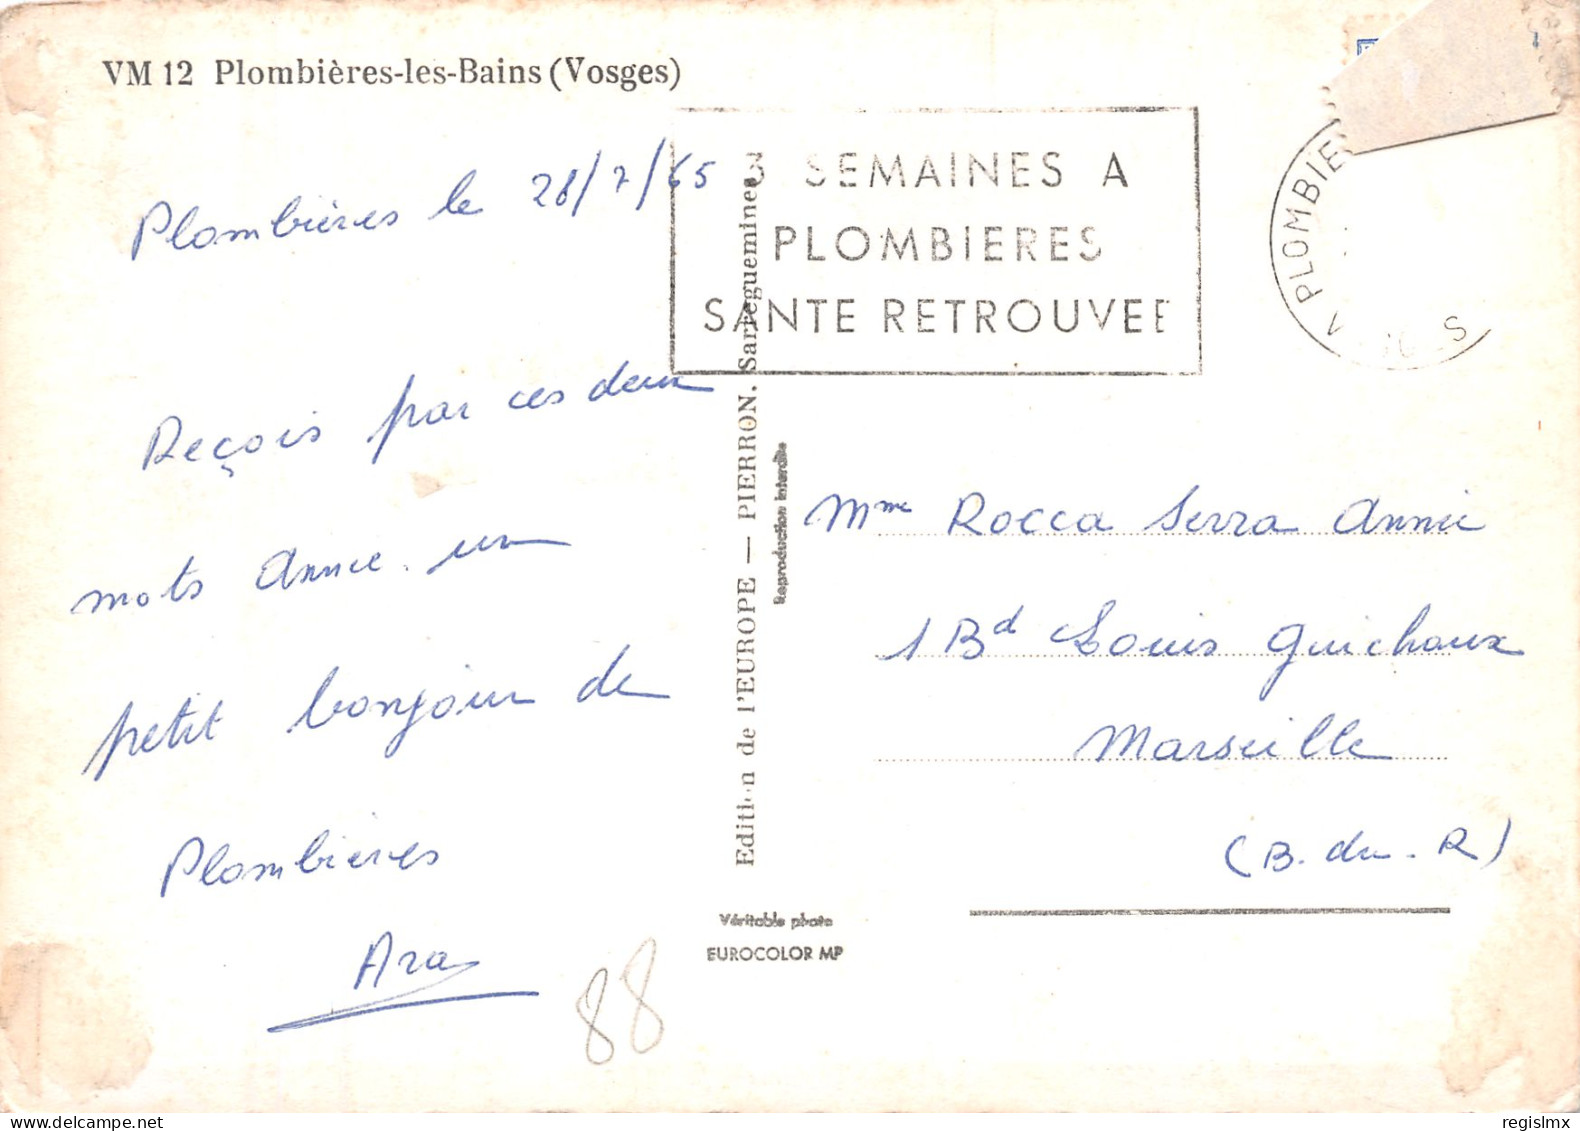 VM 12 Plombières-les-Bains (Vosges)
Plombières le 28/7/65
Reçois par ces deux
mots Annie. un
petit bonjour de
Plombières
Ara
88
3 SEMAINES A
PLOMBIERES
SANTE RETROUVEE
PLOMBIE
Edition de l'EUROPE — PIERRON. Sarreguemines
Reproduction interdite
Mme Rocca Serra Annie
1 Bd Louis Guichoux
Marseille
(B. du. R)
Véritable photo
EUROCOLOR MP
www.delcampe.net
regislmx